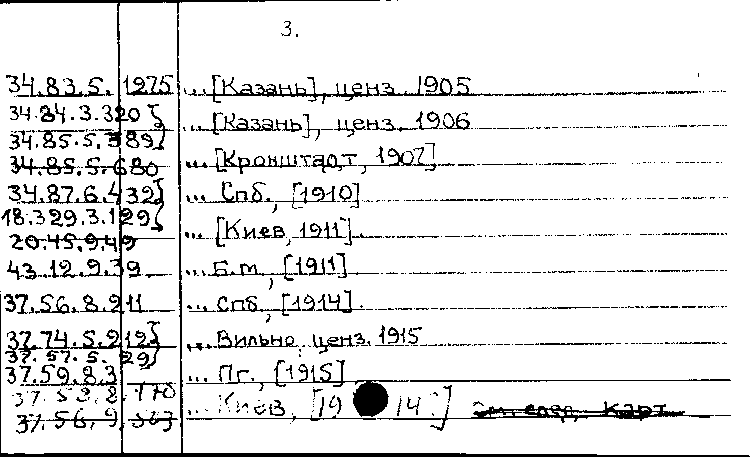 3.
34.83.5.1275 ... [Казань], ценз. 1905
34.84.3.320
... [Казань], ценз. 1906
34.85.5.389
34.85.5.680 ... [Кронштадт, 1907]
34.87.6.432 ... Спб., [1910]
18.329.3.129
... [Киев, 1911].
20.45.9.49
43.12.9.39 ... Б.м., [1911]
37.56.8.211 ... Спб., [1914].
37.74.5.212 ... Вильно, ценз. 1915
37.57.5.29
37.59.8.3 ... Пг., [1915]
37.53.8.170
... Киев, [19 14]
37.56.9.363